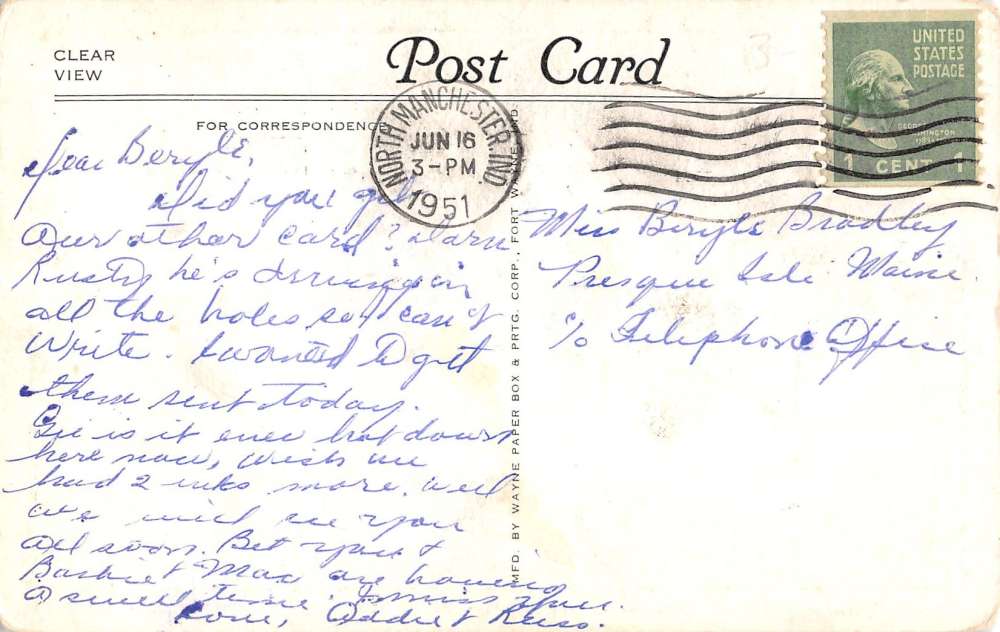 CLEAR
VIEW
Post Card
UNITED
STATES
POSTAGE
GEORGE
WASHINGTON
1 CENT 1
NORTH MANCHESTER, IND.
JUN 16
3-PM
1951
FOR CORRESPONDENCE
MFD. BY WAYNE PAPER BOX & PRTG. CORP., FORT WAYNE, IND.
Dear Beryle,
Did you get
our other card? Darn
Rusty he's driving in
all the holes so I can't
write. I wanted to get
them sent today.
Gee is it ever hot down
here now, wish we
had 2 wks more. Well
we will see you
all soon. Bet you &
& Max are having
a swell time. miss you.
Love, Addie & Russ.
Miss Beryle Bradley
Presque Isle Maine.
c/o Telephone Office